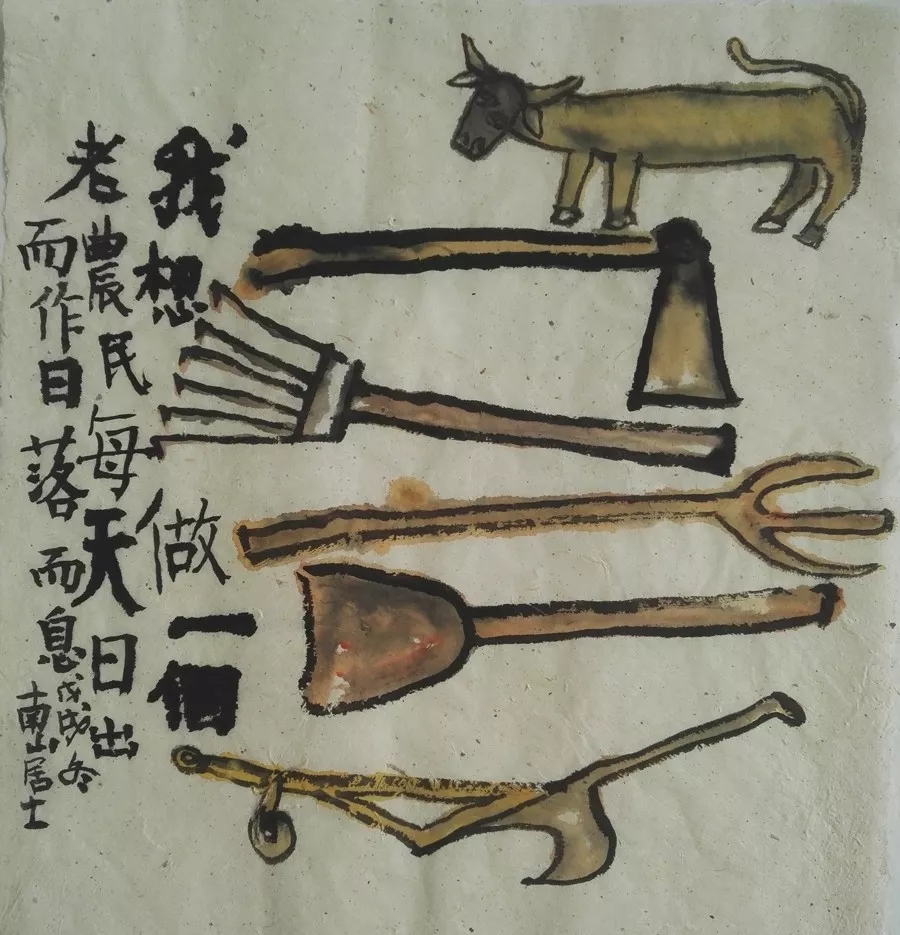 我想做一個
老農民每天日出
而作日落而息
戊戌冬
南山居士